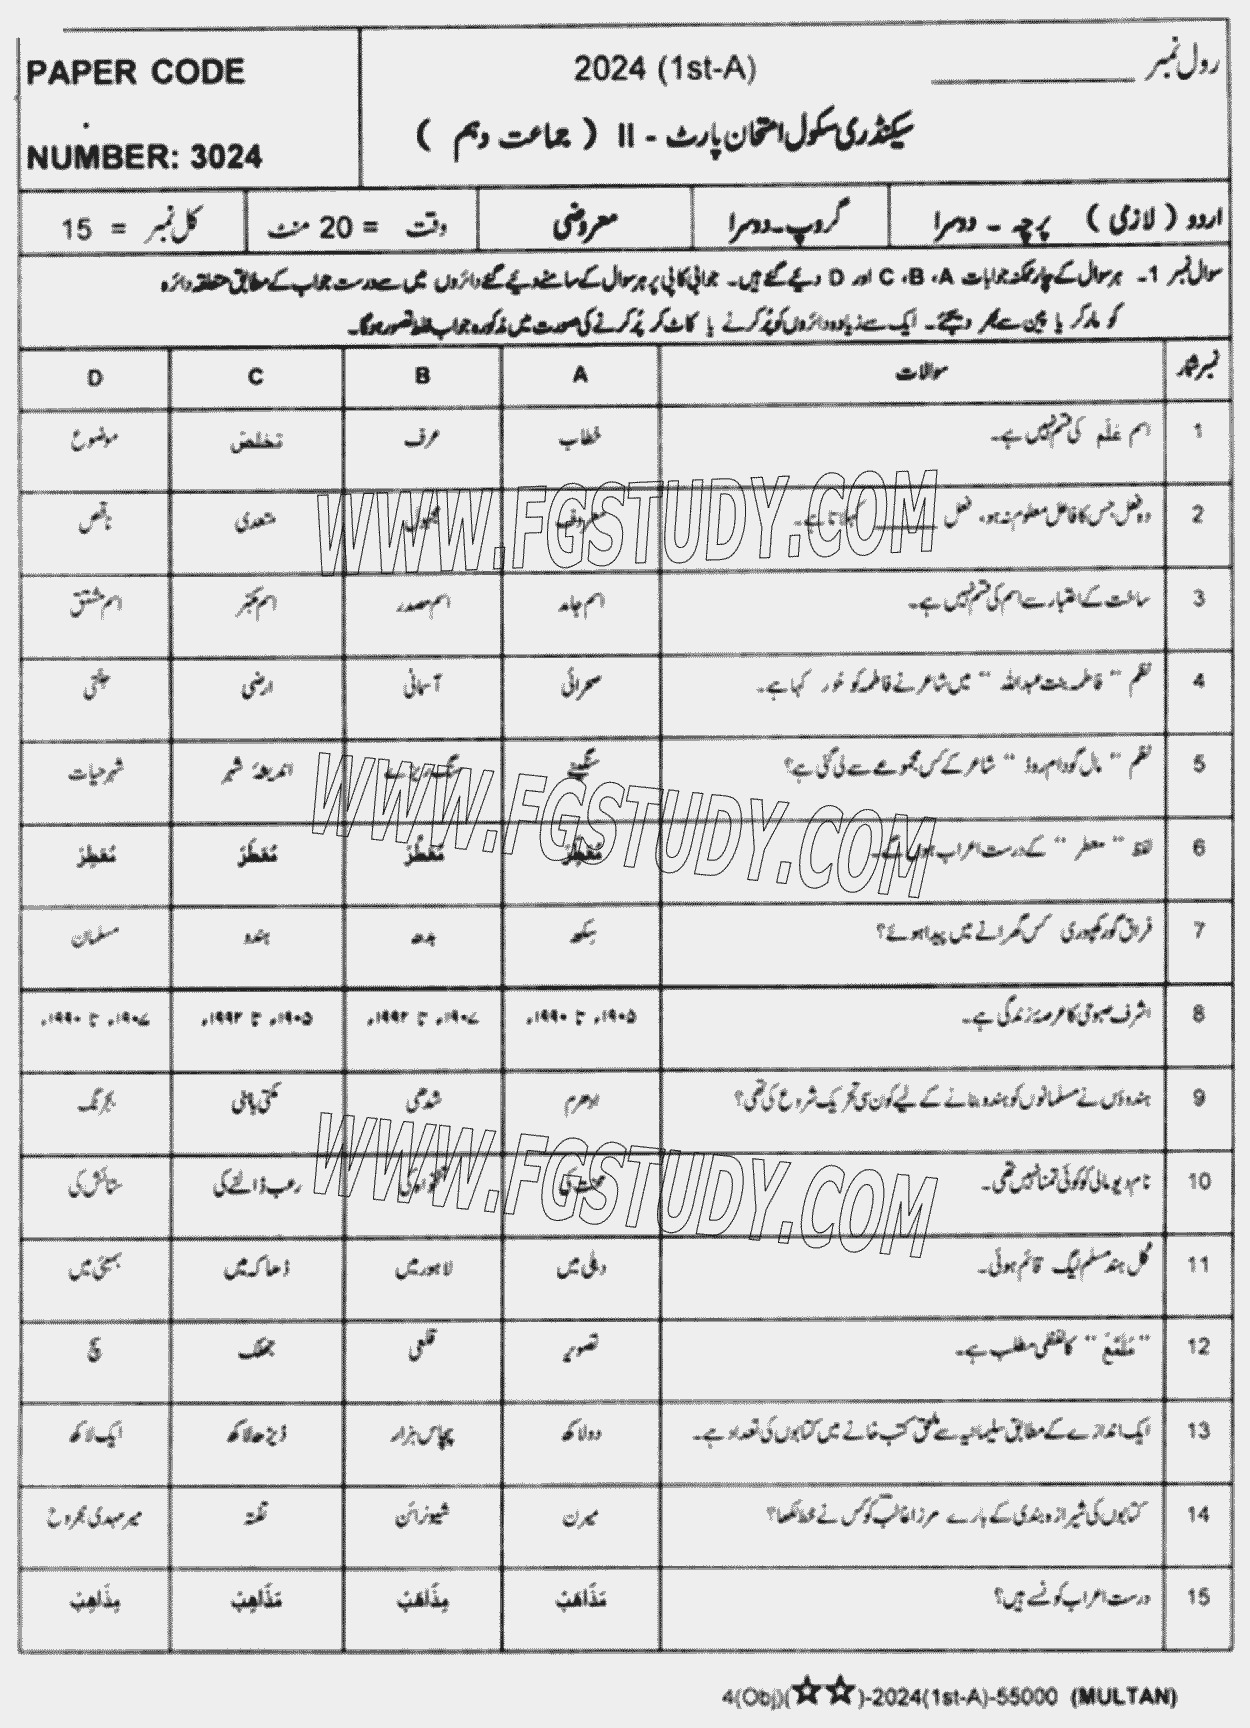 PAPER CODE
NUMBER: 3024
2024 (1st-A)
رول نمبر ____________
سیکنڈری سکول امتحان پارٹ - II ( جماعت دہم )
اردو ( لازمی ) پرچہ - دوسرا
گروپ۔دوسرا
معروضی
وقت = 20 منٹ
کل نمبر = 15
سوال نمبر 1۔ ہر سوال کے چار ممکنہ جوابات A ،B ،C اور D دیئے گئے ہیں۔ جوابی کاپی پر ہر سوال کے سامنے دیئے گئے دائروں میں سے درست جواب کے مطابق متعلقہ دائرہ
کو مارکر یا پین سے بھر دیجئے۔ ایک سے زیادہ دائروں کو پُر کرنے یا کاٹ کر پُر کرنے کی صورت میں مذکورہ جواب غلط تصور ہوگا۔
نمبر شمار سوالات A B C D
1 اسم عَلَم کی قسم نہیں ہے۔ خطاب عرف تخلص موضوع
2 وہ فعل جس کا فاعل معلوم نہ ہو، فعل ______ کہلاتا ہے۔ معروف مجہول متعدی ناقص
3 ساخت کے اعتبار سے اسم کی قسم نہیں ہے۔ اسم جامد اسم مصدر اسم مکبّر اسم مشتق
4 نظم " فاطمہ بنت عبداللہ " میں شاعر نے فاطمہ کو حُور کہا ہے۔ صحرائی آسمانی ارضی جنّتی
5 نظم " مال گودام روڈ " شاعر کے کس مجموعے سے لی گئی ہے؟ سنگ ریزے اندیشۂ شہر شہرِ حیات
6 لفظ " معطر " کے درست اعراب ہوں گے۔
7 فراق گورکھپوری کس گھرانے میں پیدا ہوئے؟ سِکھ بدھ ہندو مسلمان
8 اشرف صبوحی کا عرصۂ زندگی ہے۔ ۱۹۰۵ء تا ۱۹۹۰ء ۱۹۰۷ء تا ۱۹۹۲ء ۱۹۰۵ء تا ۱۹۹۲ء ۱۹۰۷ء تا ۱۹۹۰ء
9 ہندوؤں نے مسلمانوں کو ہندو بنانے کے لیے کون سی تحریک شروع کی تھی؟ شدھی مکتی باہنی بجرنگ
10 نام دیو مالی کو کوئی تمنا نہیں تھی۔ محنت کی تنخواہ کی رعب ڈالنے کی ستائش کی
11 کُل ہند مسلم لیگ قائم ہوئی۔ دہلی میں لاہور میں ڈھاکہ میں بمبئی میں
12 " مُلمّع " کا لفظی مطلب ہے۔ تصویر قلعی جھنگ سچ
13 ایک اندازے کے مطابق سلیمانیہ سے ملحق کتب خانے میں کتابوں کی تعداد ہے۔ دو لاکھ پچاس ہزار ڈیڑھ لاکھ ایک لاکھ
14 کتابوں کی شیرازہ بندی کے بارے مرزا غالب کو کس نے خط لکھا؟ میرن شیو نرائن تفتہ میر مہدی مجروح
15 درست اعراب کونسے ہیں؟ مَذَاہَبْ مِذَاہَبْ مَذَاہِبْ مِذَاہِبْ
WWW.FGSTUDY.COM
WWW.FGSTUDY.COM
WWW.FGSTUDY.COM
4(Obj)(☆☆)-2024(1st-A)-55000 (MULTAN)